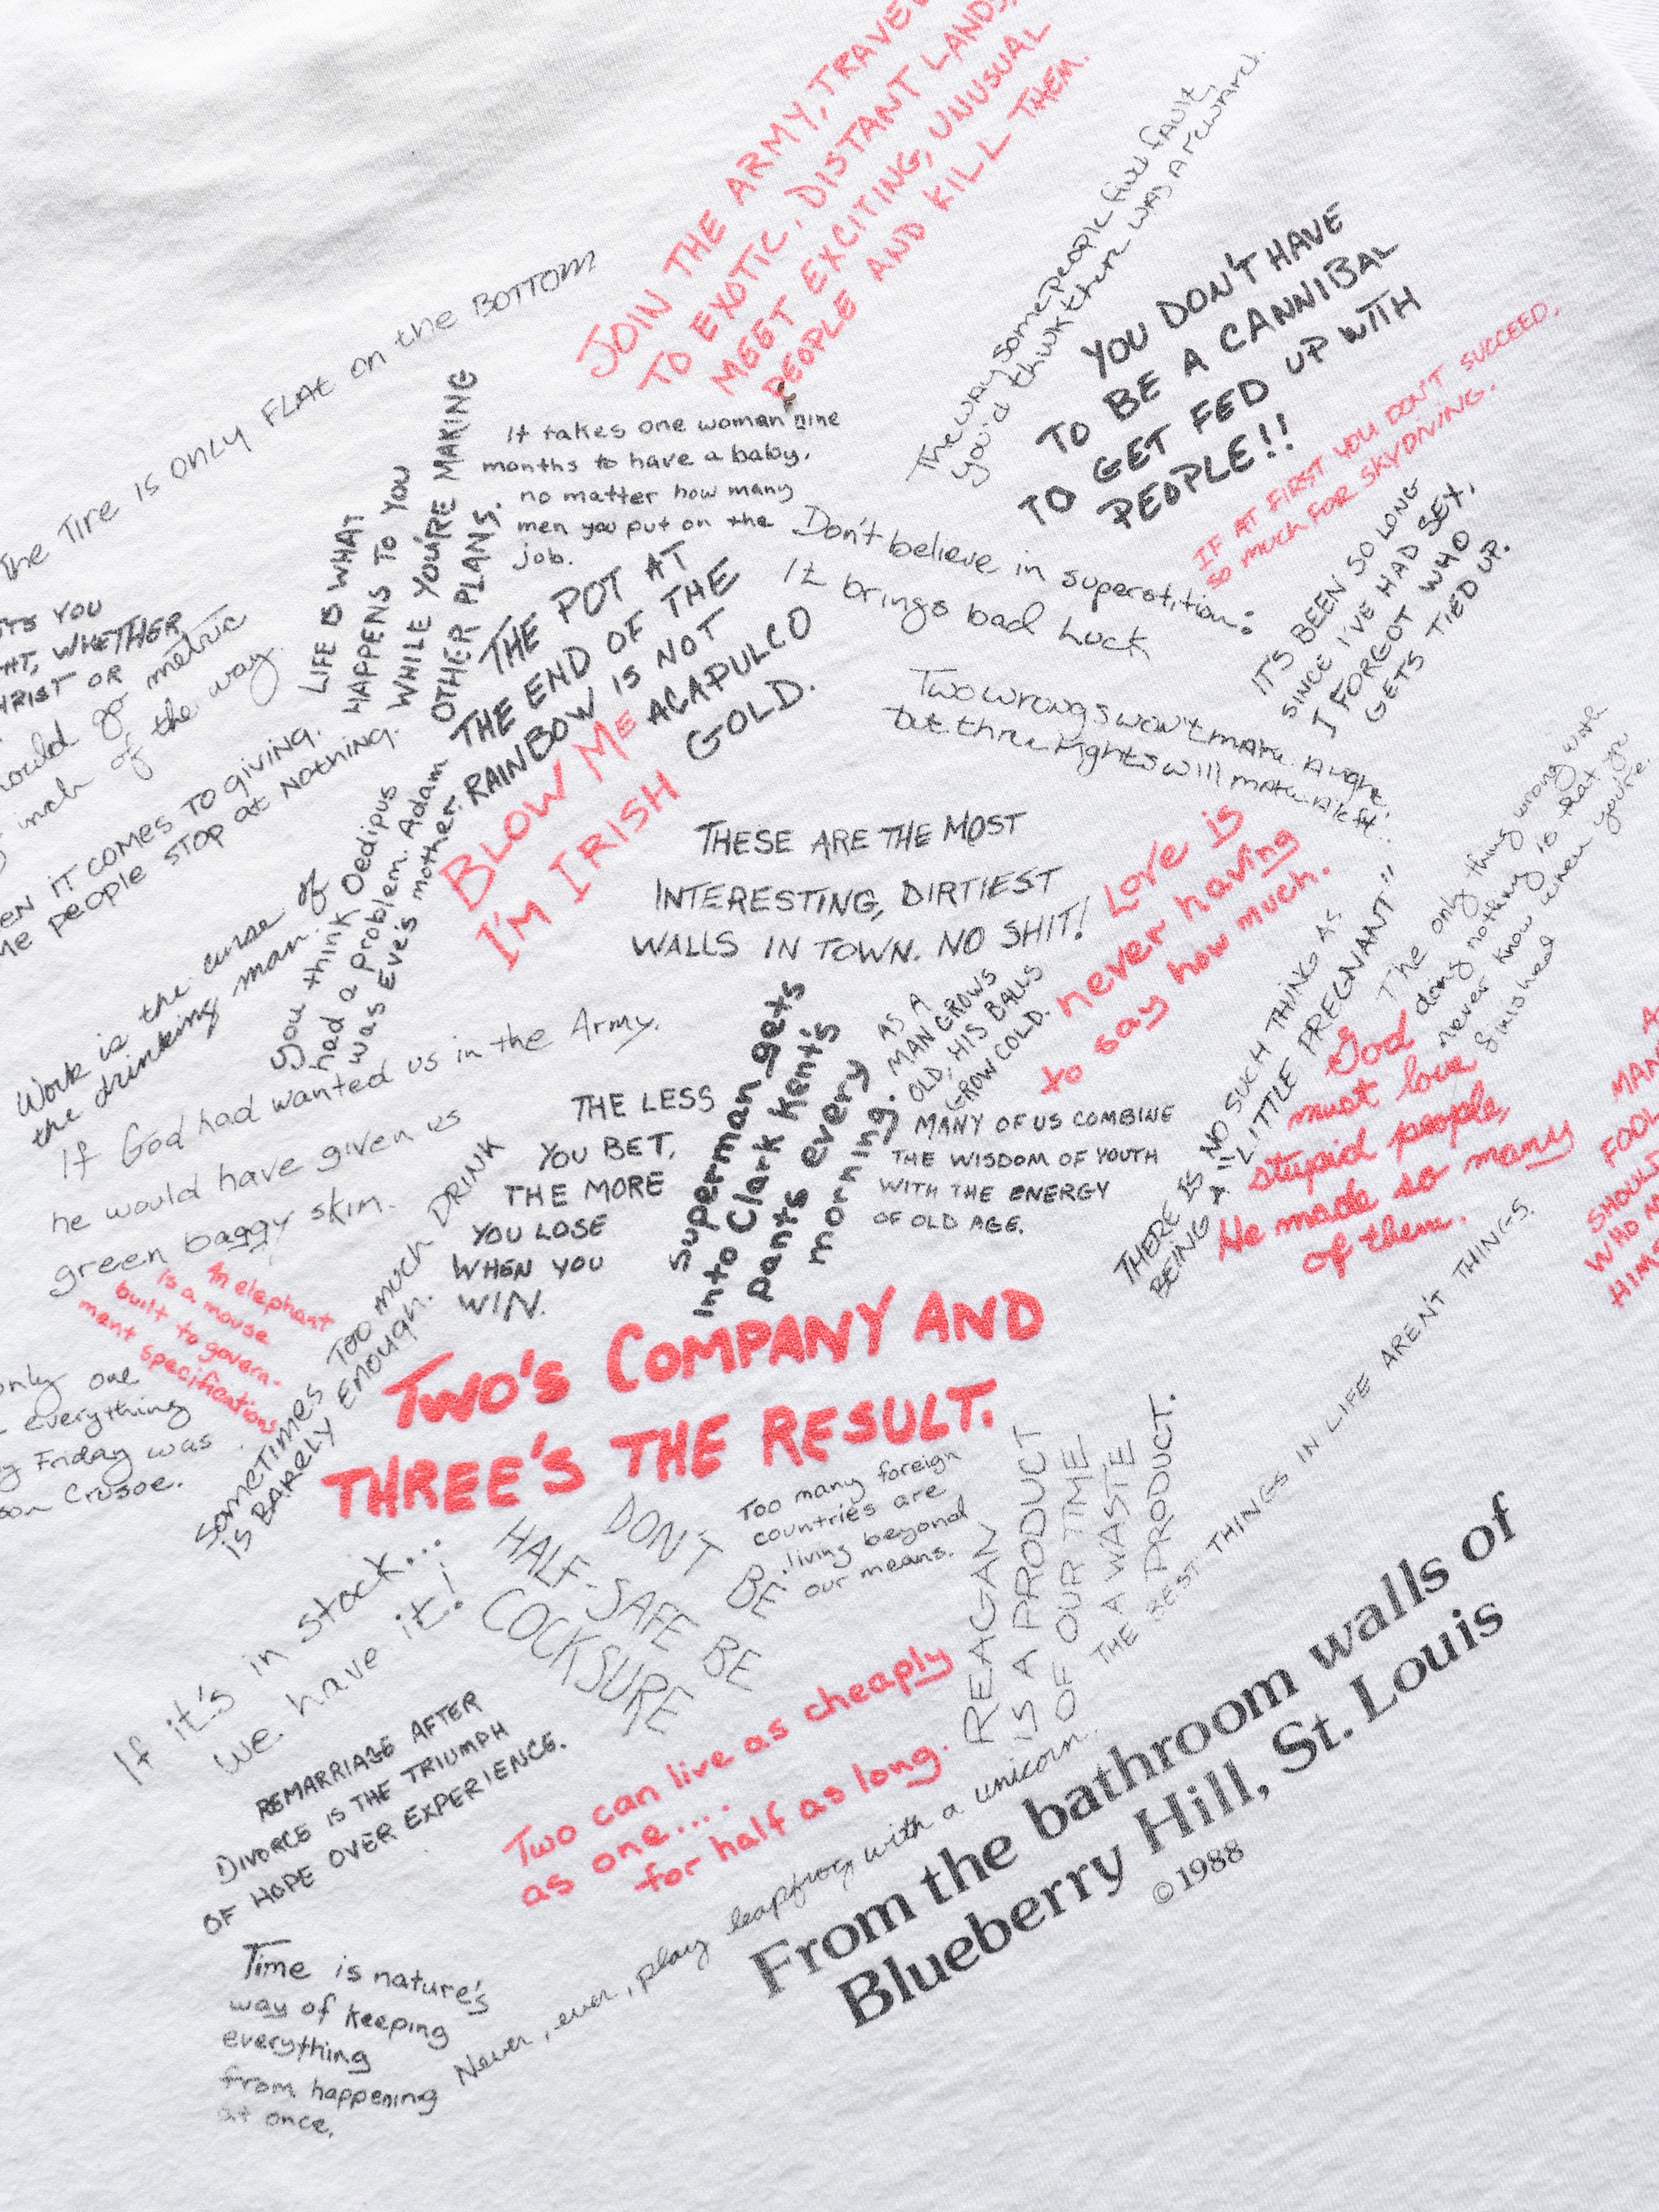 JOIN THE ARMY, TRAVEL
TO EXOTIC, DISTANT LANDS,
MEET EXCITING, UNUSUAL
PEOPLE AND KILL THEM.
The way some people find fault,
you'd think there was a reward.
The Tire is ONLY FLAt on the BOTTOM
YOU DON'T HAVE
TO BE A CANNIBAL
TO GET FED UP WITH
PEOPLE!!
IF AT FIRST YOU DON'T SUCCEED,
SO MUCH FOR SKYDIVING.
LIFE IS WHAT
HAPPENS TO YOU
WHILE YOU'RE MAKING
OTHER PLANS.
It takes one woman nine
months to have a baby,
no matter how many
men you put on the
job.
Don't believe in superstition:
It brings bad luck
IT'S BEEN SO LONG
SINCE I'VE HAD SEX,
I FORGOT WHO
GETS TIED UP.
YOU
WHETHER
OR
go metric
inch of the way.
THE POT AT
THE END OF THE
RAINBOW IS NOT
ACAPULCO
GOLD.
Two wrongs won't make a right,
but three rights will make a left.
IT COMES TO giving,
people STOP at Nothing.
BLOW ME
I'M IRISH
You think Oedipus
had a problem. Adam
was Eve's mother.
THESE ARE THE MOST
INTERESTING, DIRTIEST
WALLS IN TOWN. NO SHIT!
Love is
never having
to say how much.
The only thing wrong with
doing nothing is that you
never know when you're
finished
Work is the curse of
the drinking man.
If God had wanted us in the Army,
he would have given us
green baggy skin.
AS A
MAN GROWS
OLD, HIS BALLS
GROW COLD.
THERE IS NO SUCH THING AS
BEING A "LITTLE PREGNANT"
God
must love
stupid people,
He made so many
of them.
A
MAN
FOOL
SHOUL
WHO M
HIMS
THE LESS
YOU BET,
THE MORE
YOU LOSE
WHEN YOU
WIN.
Superman gets
into Clark Kent's
pants every
morning.
MANY OF US COMBINE
THE WISDOM OF YOUTH
WITH THE ENERGY
OF OLD AGE.
An elephant
is a mouse
built to govern-
ment specifications
SOMETIMES TOO MUCH DRINK
IS BARELY ENOUGH.
only one
everything
Friday was
Crusoe.
TWO'S COMPANY AND
THREE'S THE RESULT.
THE BEST THINGS IN LIFE AREN'T THINGS.
If it's in stock...
we have it!
DON'T BE
HALF-SAFE BE
COCKSURE
Too many foreign
countries are
living beyond
our means.
REAGAN
IS A PRODUCT
OF OUR TIME
A WASTE
PRODUCT.
REMARRIAGE AFTER
DIVORCE IS THE TRIUMPH
OF HOPE OVER EXPERIENCE.
Two can live as cheaply
as one...
for half as long.
Never, ever, play leapfrog with a unicorn.
Time is nature's
way of keeping
everything
from happening
at once.
From the bathroom walls of
Blueberry Hill, St. Louis
©1988